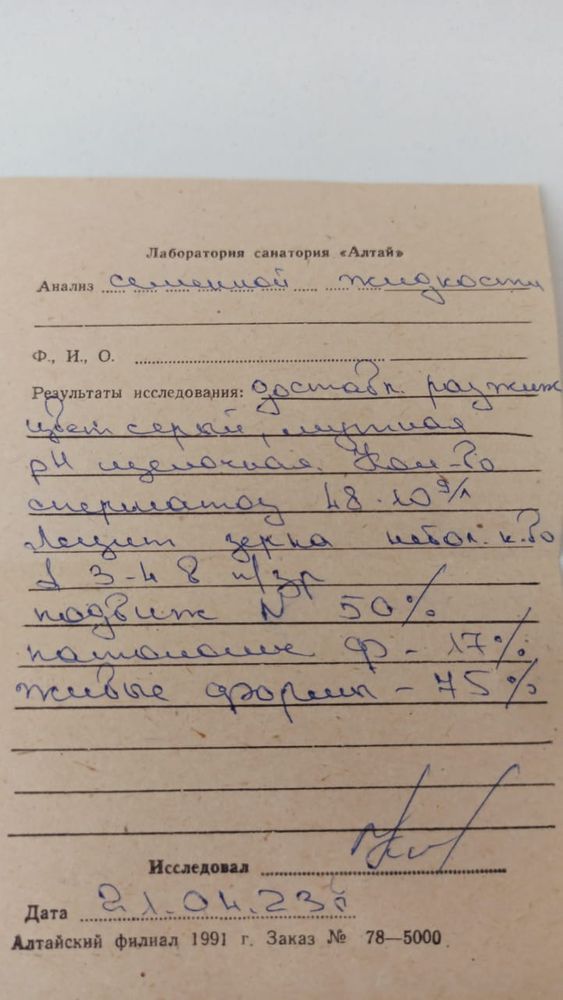 Лаборатория санатория «Алтай»
Анализ семенной жидкости
Ф., И., О.
Результаты исследования: доставл. разжиж
цвет серый, мутная
рН щелочная. Кол-во
сперматоз 48·10⁹/л
Лецит зерна небол. к-во
L 3-4 в п/зр
подвиж N 50%
патологич ф - 17%
живые формы - 75%
Исследовал
Дата 21.04.23г
Алтайский филиал 1991 г. Заказ № 78—5000